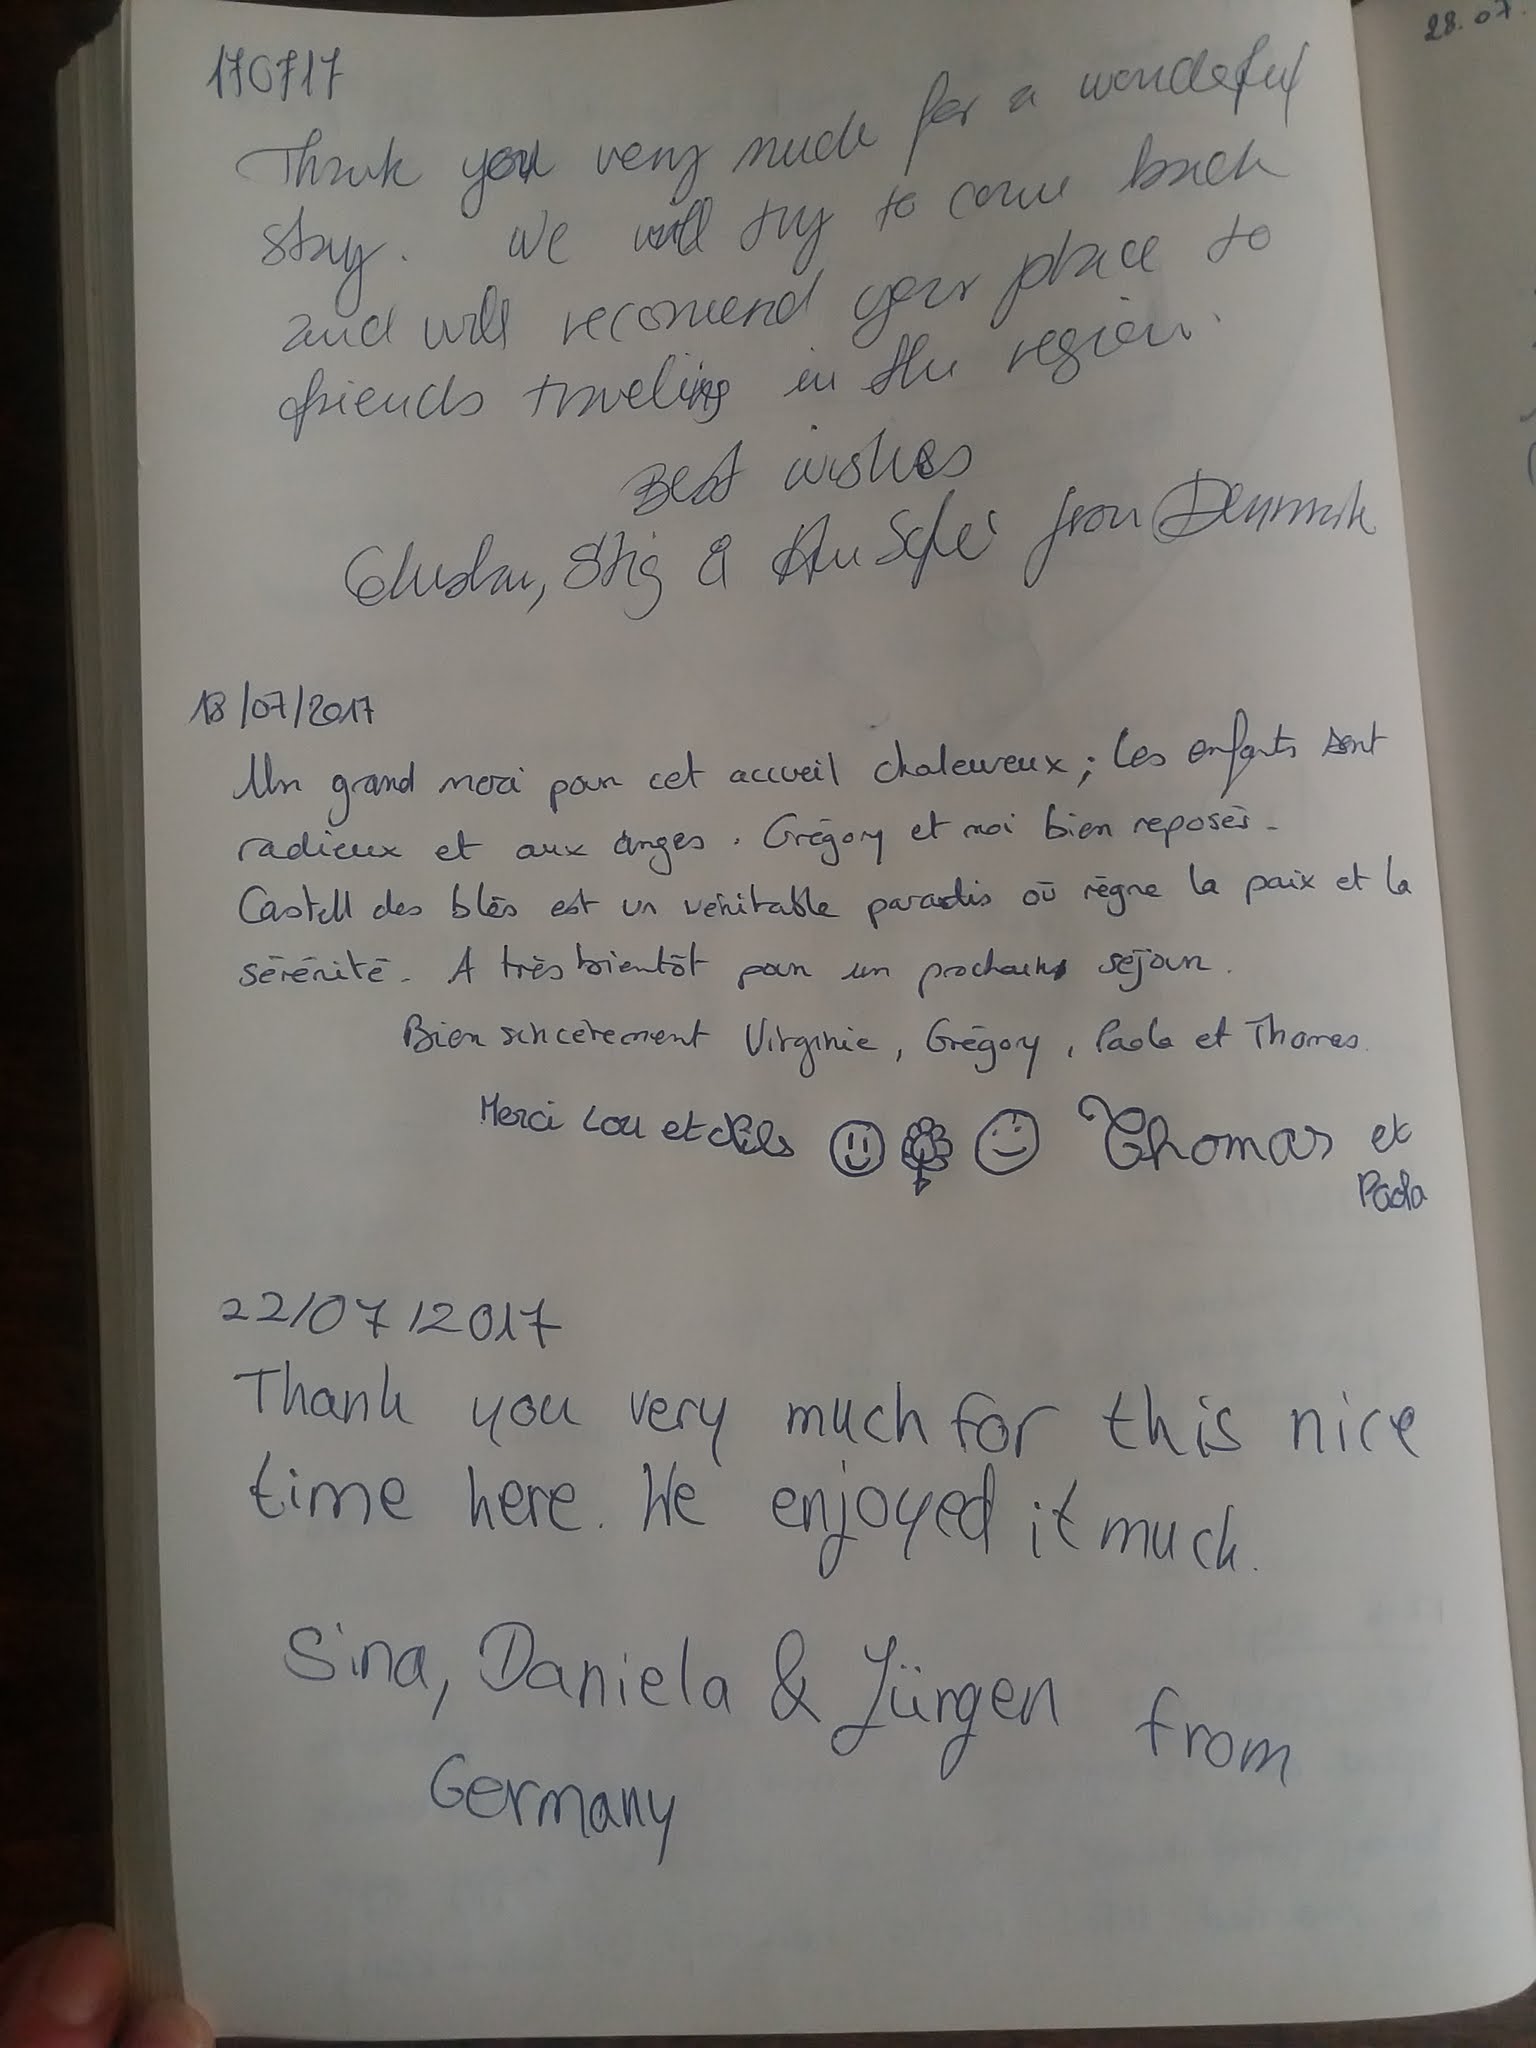 28.07.
170717
Thank you very much for a wondeful
stay. We will try to come back
and will recomend your place to
friends traveling in the region.
Best wishes
Stig & from Denmark
18/07/2017
Un grand merci pour cet accueil chaleureux ; les enfants sont
radieux et aux anges. Grégory et moi bien reposés.
Castell des blés est un véritable paradis où règne la paix et la
sérénité. A très bientôt pour un prochain séjour.
Bien sincèrement Virginie, Grégory, Paola et Thomas.
Merci Lou et Nils Thomas et
Paola
22/07/2017
Thank you very much for this nice
time here. We enjoyed it much.
Sina, Daniela & Jürgen from
Germany